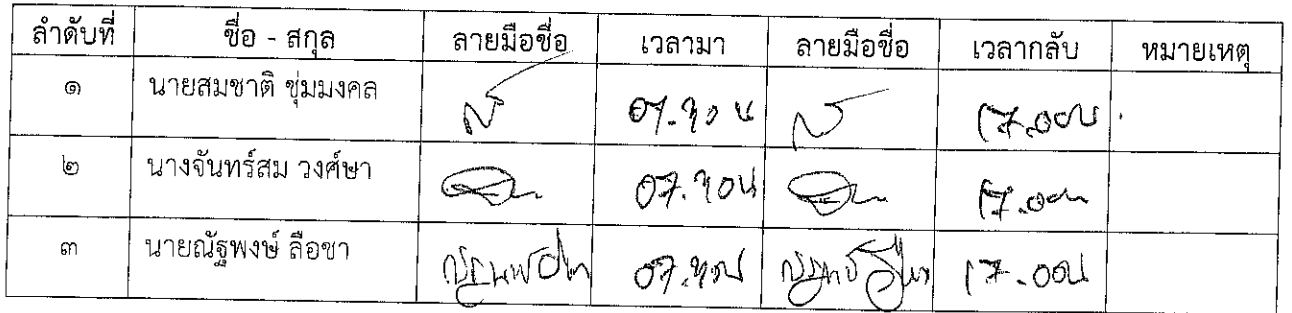 ลำดับที่ ชื่อ - สกุล ลายมือชื่อ เวลามา ลายมือชื่อ เวลากลับ หมายเหตุ
๑ นายสมชาติ ชุ่มมงคล 07.30 น 17.00น
๒ นางจันทร์สม วงศ์ษา 07.30น 17.00น
๓ นายณัฐพงษ์ ลือชา 07.30น 17.00น